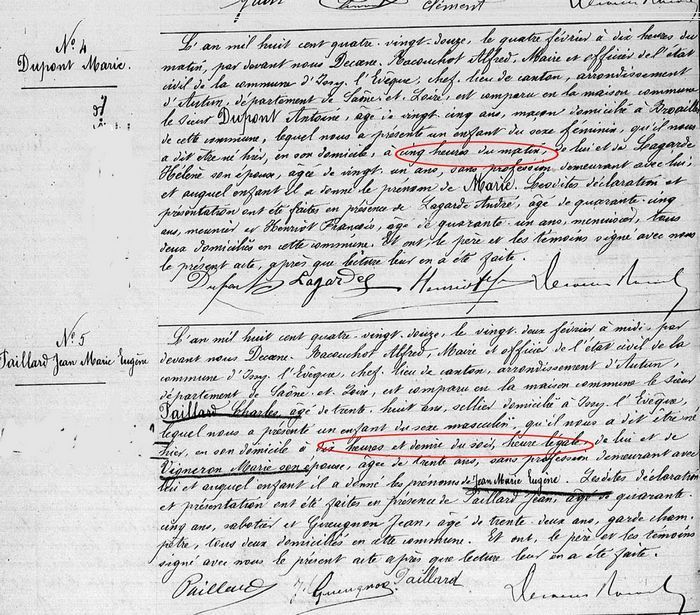 Clément
N° 4
Dupont Marie.
L'an mil huit cent quatre-vingt-douze, le quatre février à dix heures du
matin, par devant nous Decane-Racouchot Alfred, Maire et officier de l'état
civil de la commune d'Issy-l'Evêque, chef-lieu de canton, arrondissement
d'Autun, département de Saône-et-Loire, est comparu en la maison commune
le sieur Dupont Antoine, âgé de vingt-cinq ans, maçon domicilié à
de cette commune, lequel nous a présenté un enfant du sexe féminin, qu'il nous
a dit être né hier, en son domicile, à cinq heures du matin, de lui et de Lagarde
Hélène son épouse, âgée de vingt-un ans, sans profession demeurant avec lui:
et auquel enfant il a donné le prénom de Marie. Lesdites déclaration et
présentation ont été faites en présence de Lagarde André, âgé de quarante-cinq
ans, meunier et Henriot François, âgé de quarante-un ans, menuisier, tous
deux domiciliés en cette commune. Et ont le père et les témoins signé avec nous
le présent acte, après que lecture leur en a été faite.
Dupont Lagarde Henriot
N° 5
Paillard Jean Marie Eugène
L'an mil huit cent quatre-vingt-douze, le vingt-deux février à midi, par
devant nous Decane-Racouchot Alfred, Maire et officier de l'état civil de la
commune d'Issy-l'Evêque, chef-lieu de canton, arrondissement d'Autun
département de Saône-et-Loire, est comparu en la maison commune le sieur
Paillard Charles, âgé de trente-huit ans, sellier domicilié à Issy-l'Evêque,
lequel nous a présenté un enfant du sexe masculin, qu'il nous a dit être né
hier, en son domicile à dix heures et demie du soir, heure légale, de lui et de
Vigneron Marie son épouse, âgée de trente ans, sans profession demeurant avec
lui et auquel enfant il a donné les prénoms de Jean Marie Eugène. Lesdites déclaration
et présentation ont été faites en présence de Paillard Jean, âgé de quarante-
cinq ans, sabotier et Gueugnon Jean, âgé de trente-deux ans, garde cham-
pêtre, tous deux domiciliés en cette commune. Et ont, le père et les témoins
signé avec nous le présent acte après que lecture leur en a été faite.
Paillard J. Gueugnon Paillard